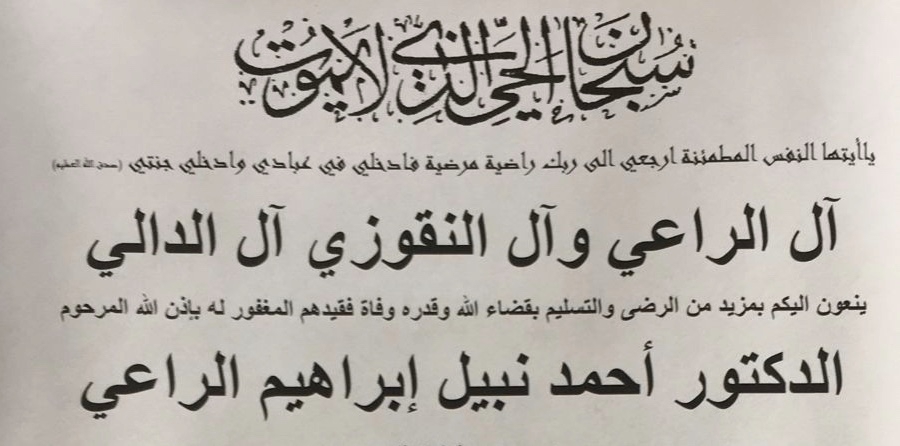 سبحان الحي الذي لا يموت
ياأيتها النفس المطمئنة ارجعي الى ربك راضية مرضية فادخلي في عبادي وادخلي جنتي (صدق الله العظيم)
آل الراعي وآل النقوزي آل الدالي
ينعون اليكم بمزيد من الرضى والتسليم بقضاء الله وقدره وفاة فقيدهم المغفور له بإذن الله المرحوم
الدكتور أحمد نبيل إبراهيم الراعي